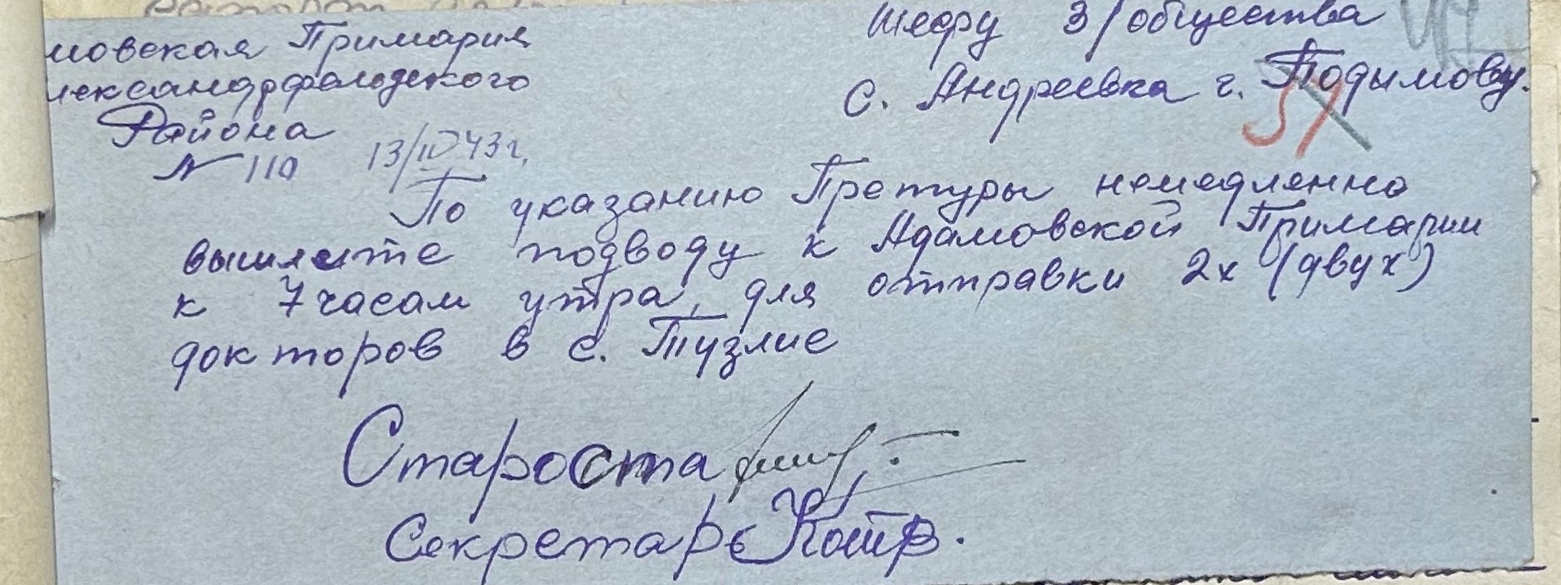 мовская Примария
лександрфельдского
Района
№ 110 13/IV 43 г.
Шефу З/общества
с. Андреевка г. Подымову.
59
По указанию Претуры немедленно
вышлите подводу к Адамовской Примарии
к 7 часам утра, для отправки 2х (двух)
докторов в с. Тузлие
Староста
Секретарь